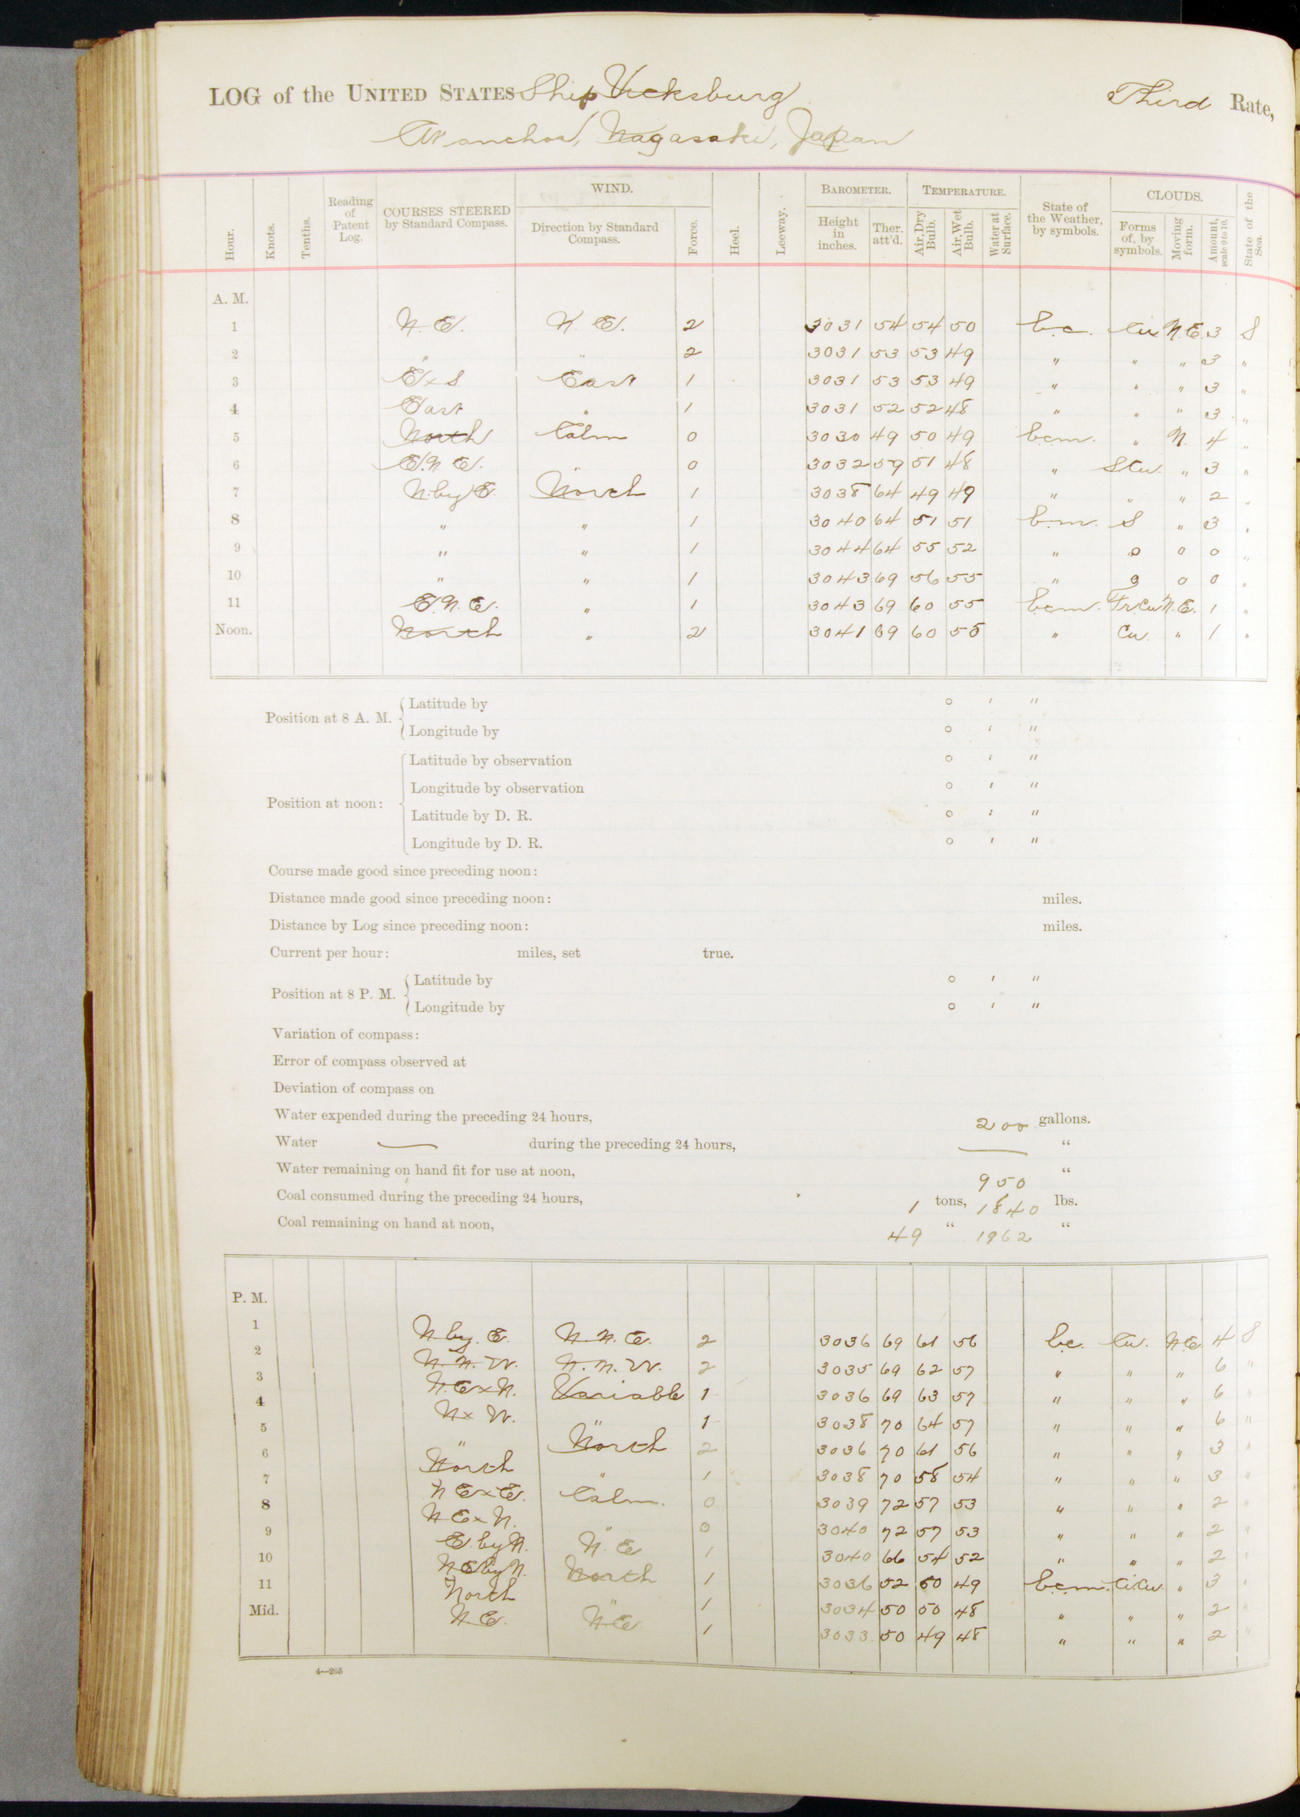 LOG of the UNITED STATES Ship Vicksburg Third Rate,
At anchor, Nagasaki, Japan
Hour. Knots. Tenths. Reading of Patent Log. COURSES STEERED by Standard Compass. WIND. Direction by Standard Compass. Force. Heel. Leeway. BAROMETER. Height in inches. Ther. att'd. TEMPERATURE. Air, Dry Bulb. Air, Wet Bulb. Water at Surface. State of the Weather, by symbols. CLOUDS. Forms of, by symbols. Moving form. Amount, scale 0 to 10. State of the Sea.
A. M.
1 N. E. N. E. 2 3031 54 54 50 b.c. Cu N.E. 3 S
2 " " 2 3031 53 53 49 " " " 3 "
3 E x S East 1 3031 53 53 49 " " " 3 "
4 East " 1 3031 52 52 48 " " " 3 "
5 North Calm 0 3030 49 50 49 b.c.m. " N. 4 "
6 E.N.E. 0 3032 59 51 48 " S.Cu. " 3 "
7 N. by E. North 1 3038 64 49 49 " " " 2 "
8 " " 1 3040 64 51 51 b.m. S " 3 "
9 " " 1 3044 64 55 52 " 0 0 0 "
10 " " 1 3043 69 56 55 " 0 0 0 "
11 E.N.E. " 1 3043 69 60 55 b.c.m. Fr.Cu N.E. 1 "
Noon. North " 2 3041 69 60 55 " Cu. " 1 "
Position at 8 A. M. Latitude by ° ' "
Longitude by ° ' "
Position at noon: Latitude by observation ° ' "
Longitude by observation ° ' "
Latitude by D. R. ° ' "
Longitude by D. R. ° ' "
Course made good since preceding noon:
Distance made good since preceding noon: miles.
Distance by Log since preceding noon: miles.
Current per hour: miles, set true.
Position at 8 P. M. Latitude by ° ' "
Longitude by ° ' "
Variation of compass:
Error of compass observed at
Deviation of compass on
Water expended during the preceding 24 hours, 200 gallons.
Water — during the preceding 24 hours, — "
Water remaining on hand fit for use at noon, 950 "
Coal consumed during the preceding 24 hours, 1 tons, 1840 lbs.
Coal remaining on hand at noon, 49 " 1962 "
P. M.
1 N. by. E. N. N. E. 2 3036 69 61 56 b.c. Cu. N.E. 4 S
2 N. N. W. N. N. W. 2 3035 69 62 57 " " " 6 "
3 N. E x N. Variable 1 3036 69 63 57 " " " 6 "
4 N x W. " 1 3038 70 64 57 " " " 6 "
5 " North 2 3036 70 61 56 " " " 3 "
6 North " 1 3038 70 58 54 " " " 3 "
7 N E x E. Calm. 0 3039 72 57 53 " " " 2 "
8 N E x N. 0 3040 72 57 53 " " " 2 "
9 E. by N. N. E 1 3040 66 54 52 " " " 2 "
10 N E by N. North 1 3036 52 50 49 b.c.m. Ci.Cu. " 3 "
11 North " 1 3034 50 50 48 " " " 2 "
Mid. N. E. N. E 1 3033 50 49 48 " " " 2 "
4—265